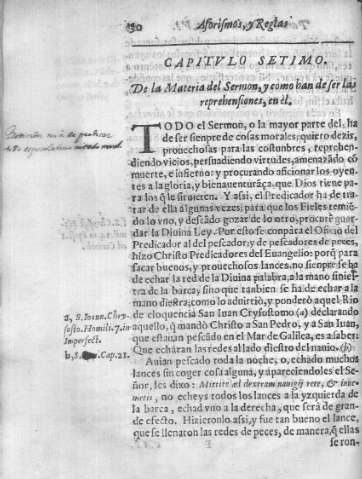 150 Aforismos, y Reglas
CAPITVLO SETIMO.
De la Materia del Sermon, y como han de ser las
reprehensiones, en èl.
TODO el Sermon, o la mayor parte del, ha
de ser sienpre de cosas morales; quiero dezir,
prouechosas para las costunbres, reprehen-
diendo vicios, persuadiendo virtudes, amenazãdo cõ
muerte, e infierno: y procurando aficionar los oyen-
tes a la gloria, y bienauenturãça, que Dios tiene pa-
ra los q̃ le siruieren. Y assi, el Predicador ha de tra-
tar de ella algunas vezes; para que los Fieles temiẽ-
do lo vno, y deseãdo gozar de lo otro; procurẽ guar
dar la Diuina Ley. Por esto se conpára el Oficio del
Predicador al del pescador; y de pescadores de peces,
hizo Christo Predicadores del Euangelio: porq̃ para
sacar buenos, y prouechosos lances, no sienpre se ha
de echar la red de la Diuina palabra, a la mano sinies-
tra de la barca; sino que tanbien se ha de echar a la
mano diestra; como lo aduirtiò, y ponderò aquel Rio
de eloquencia San Iuan Crysostomo (a) declarando
aquello, q̃ mandò Christo a San Pedro, y a San Iuan,
que estauan pescãdo en el Mar de Galilea, es a saber:
Que echáran las redes al lado diestro del nauio. (b)
Auian pescado toda la noche, o, echãdo muchos
lances sin coger cosa alguna, y apareciendoles el Se-
ñor, les dixo: Mittite ad dextram nauigij rete, & inue-
nietis, no echeys todos los lances a la yzquierda de
la barca, echad vno a la derecha, que serà de gran-
de efecto. Hizieronlo assi, y fue tan bueno el lance,
que se llenaron las redes de peces, de manera, q̃ ellas
se ron-
a, S. Ioann. Chry-
sosto. Homili. 7. in
Imperfect.
b, Cap. 21.